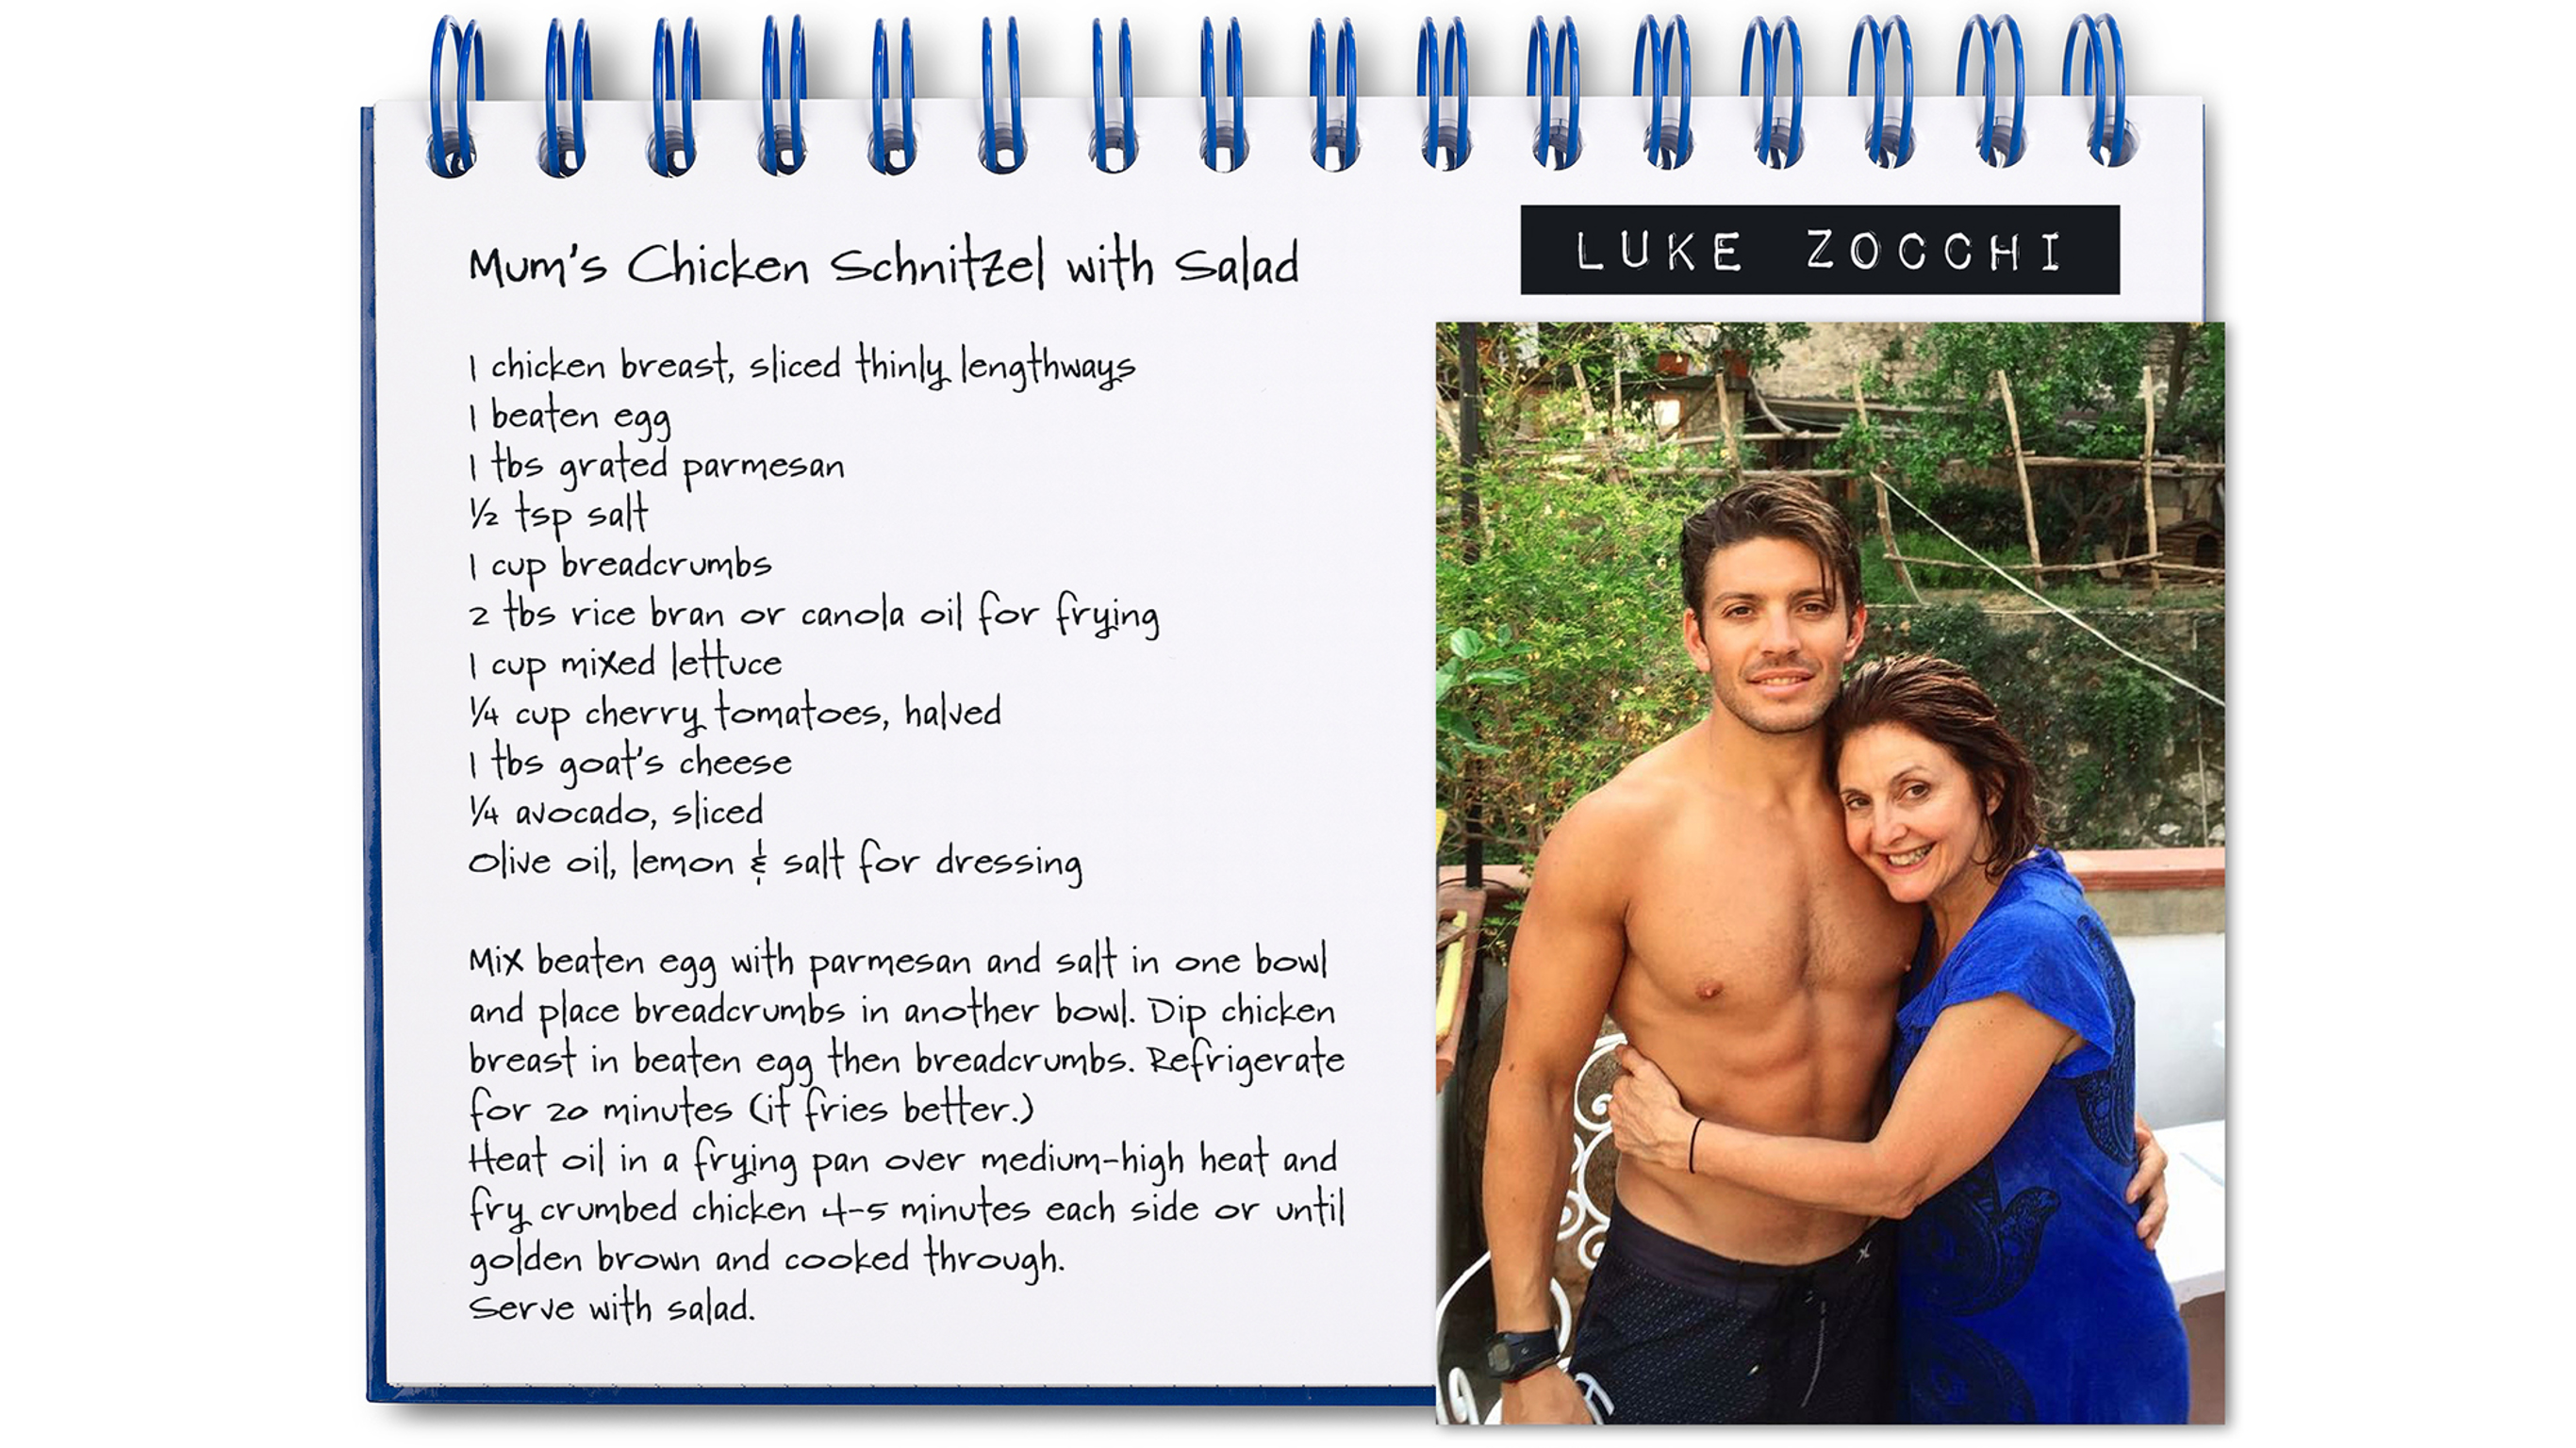 Mum's Chicken Schnitzel with Salad
LUKE ZOCCHI
1 chicken breast, sliced thinly lengthways
1 beaten egg
1 tbs grated parmesan
½ tsp salt
1 cup breadcrumbs
2 tbs rice bran or canola oil for frying
1 cup mixed lettuce
¼ cup cherry tomatoes, halved
1 tbs goat's cheese
¼ avocado, sliced
Olive oil, lemon & salt for dressing
Mix beaten egg with parmesan and salt in one bowl
and place breadcrumbs in another bowl. Dip chicken
breast in beaten egg then breadcrumbs. Refrigerate
for 20 minutes (it fries better.)
Heat oil in a frying pan over medium-high heat and
fry crumbed chicken 4-5 minutes each side or until
golden brown and cooked through.
Serve with salad.